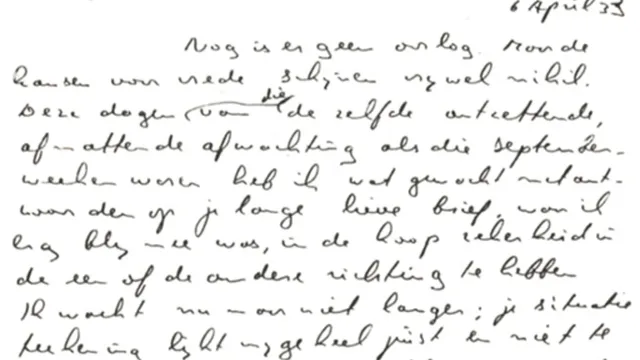 6 April 39
Nog is er geen oorlog. Maar de
kansen voor vrede schijnen vrywel nihil.
Deze dagen, van die de zelfde ontzettende,
afmattende afwachting als die september-
weeken waren heb ik wat gewacht met ant-
woorden op je lange lieve brief, waar ik
erg bly mee was, in de hoop zekerheid in
de een of de andere richting te hebben
Ik wacht nu maar niet langer; je situatie
teekening lykt my geheel juist en niet te